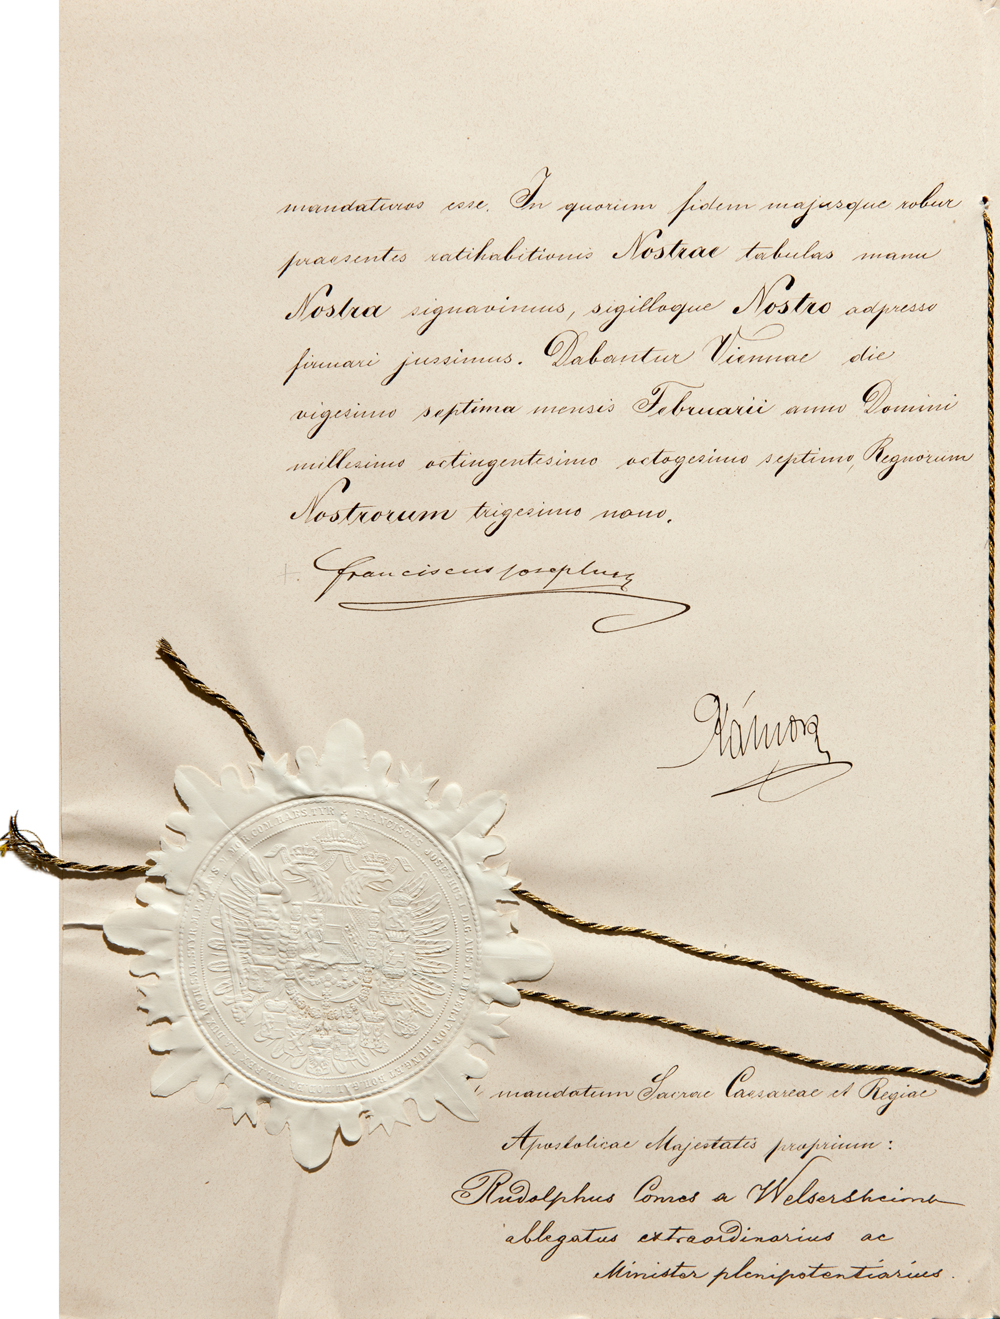 mandaturos esse. In quorum fidem majusque robur
praesentes ratihabitionis Nostrae tabulas manu
Nostra signavimus, sigilloque Nostro adpresso
firmari jussimus. Dabantur Viennae die
vigesimo septima mensis Februarii anno Domini
millesimo octingentesimo octogesimo septimo, Regnorum
Nostrorum trigesimo nono.
Franciscus Josephus
Kálnoky
FRANCISCUS JOSEPHUS I D.G. AUSTRIAE IMPERATOR
mandatum Sacrae Caesareae et Regiae
Apostolicae Majestatis proprium:
Rudolphus Comes a Welsersheimb
ablegatus extraordinarius ac
Minister plenipotentiarius.